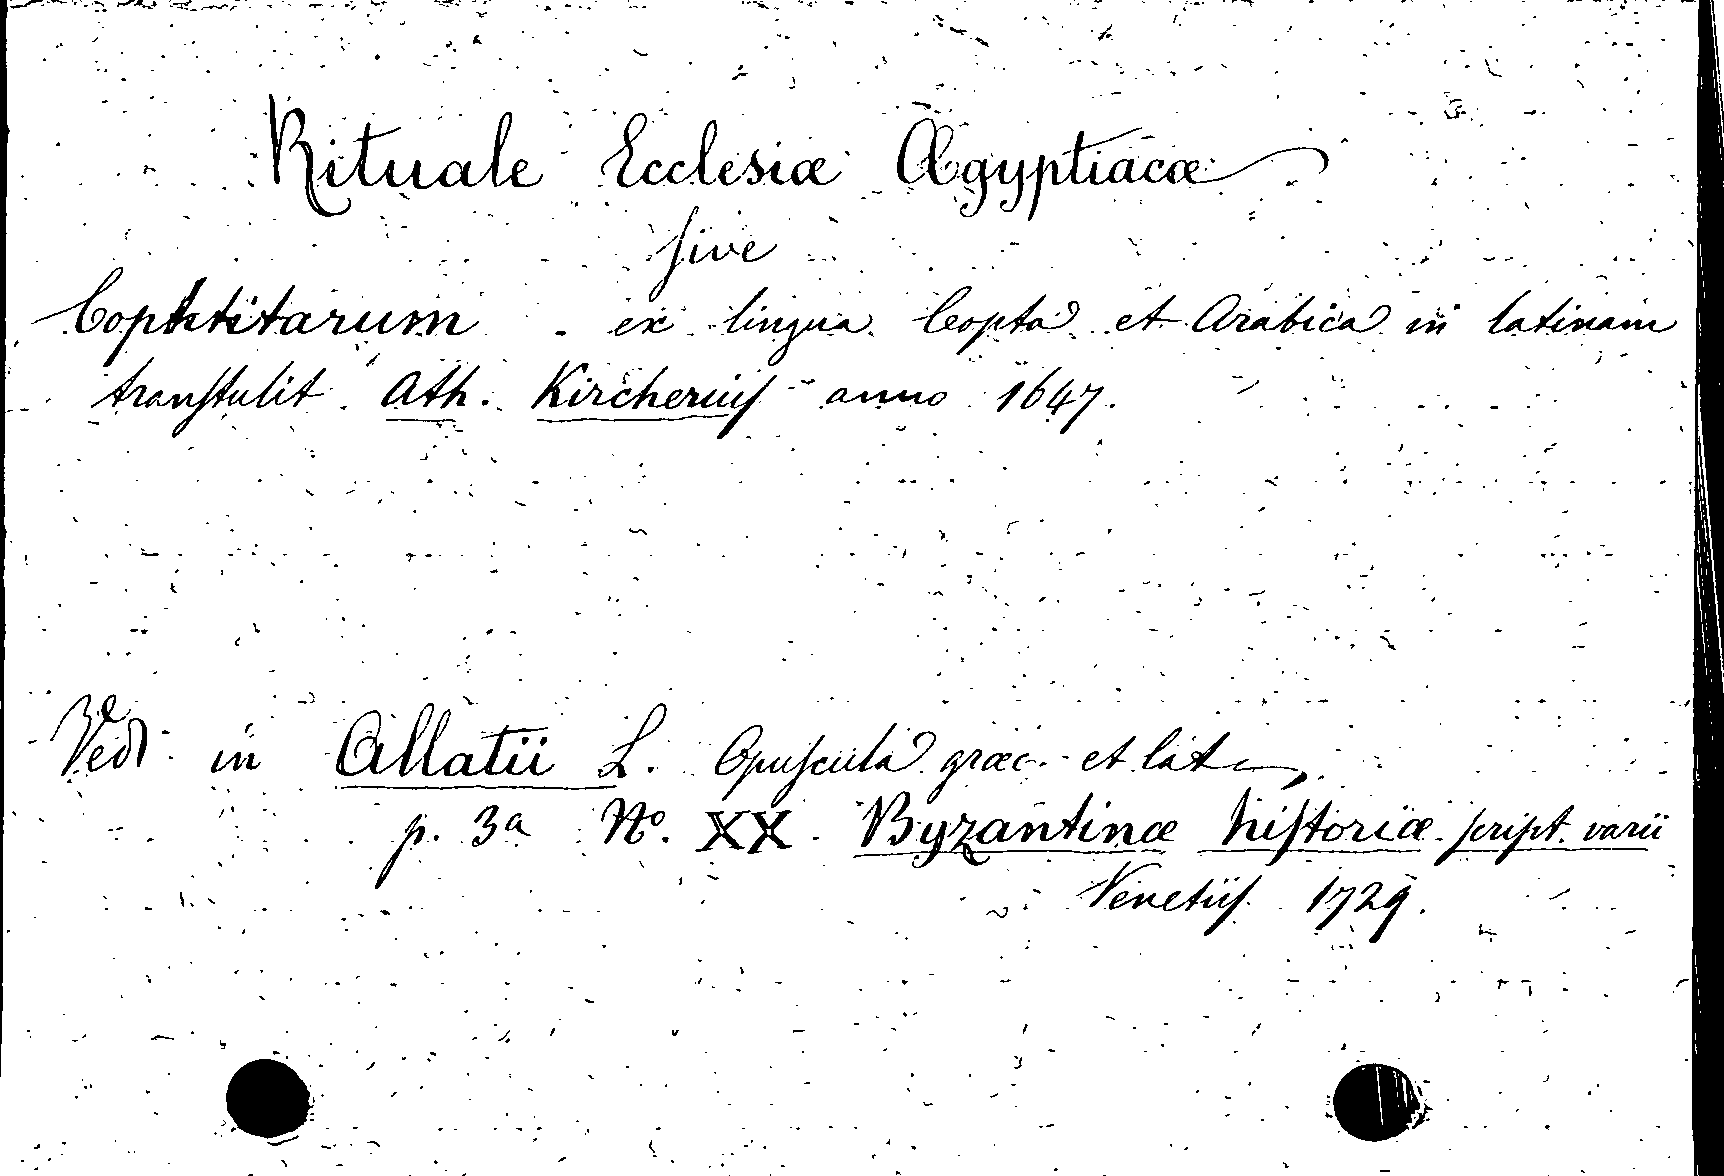 Rituale Ecclesiæ Ægyptiacæ
ſive
Cophtitarum - ex lingua Copta et Arabica in latinam
tranſtulit Ath. Kircheriuſ anno 1647.
Vedi in Allatii L. Opuſcula græc. et lat
p. 3a No. XX. Byzantinæ hiſtoriæ ſcript. varii
Venetiiſ 1729.